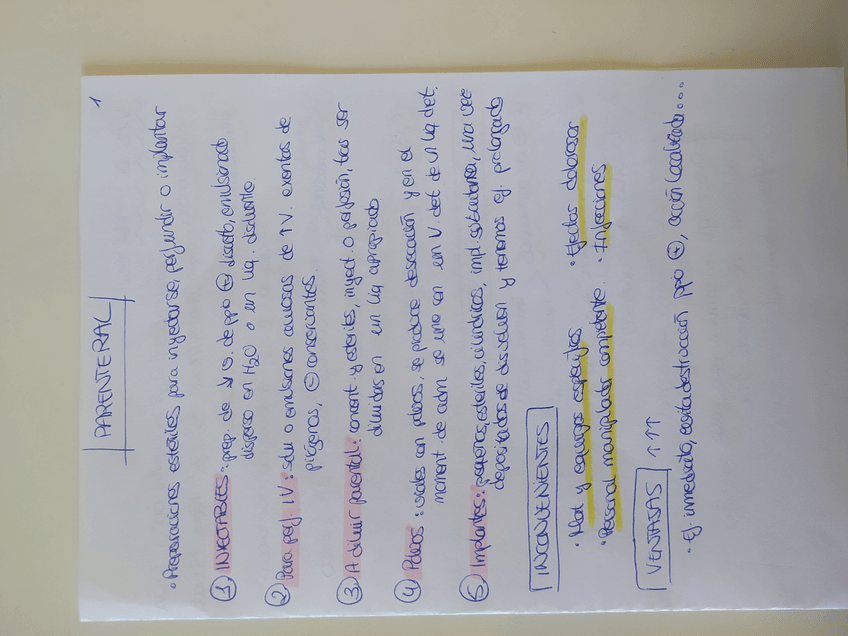 1
PARENTERAL
• Preparaciones estériles para inyectarse, perfundir o implantar
① INYECTABLES: prep. de ↓ V. de ppio ⊕ disuelto, emulsionado
disperso en H2O o en líq. disolvente.
② Para perf. IV: solu o emulsiones acuosas de ↑V. exentas de
pirógenos, ⊖ conservantes.
③ A diluir parental: concent. y estériles, inyect. o perfusión, tras ser
diluidas en un líq apropiado
④ Polvos: viales con polvos, se produce desecación y en el
moment de adm. se une con un V. det de un líq det.
⑤ Implantes: pequeños, estériles, cilíndricos, impl. subcutánea, una vez
depositados se disuelven y tenemos ef. prolongado
INCONVENIENTES
• Mat y equipos específicos • Efectos dolorosos
• Personal manipulador competente • Infecciones
VENTAJAS ↑↑↑
• Ef. inmediato, evita destrucción ppio ⊕, acción localizada...